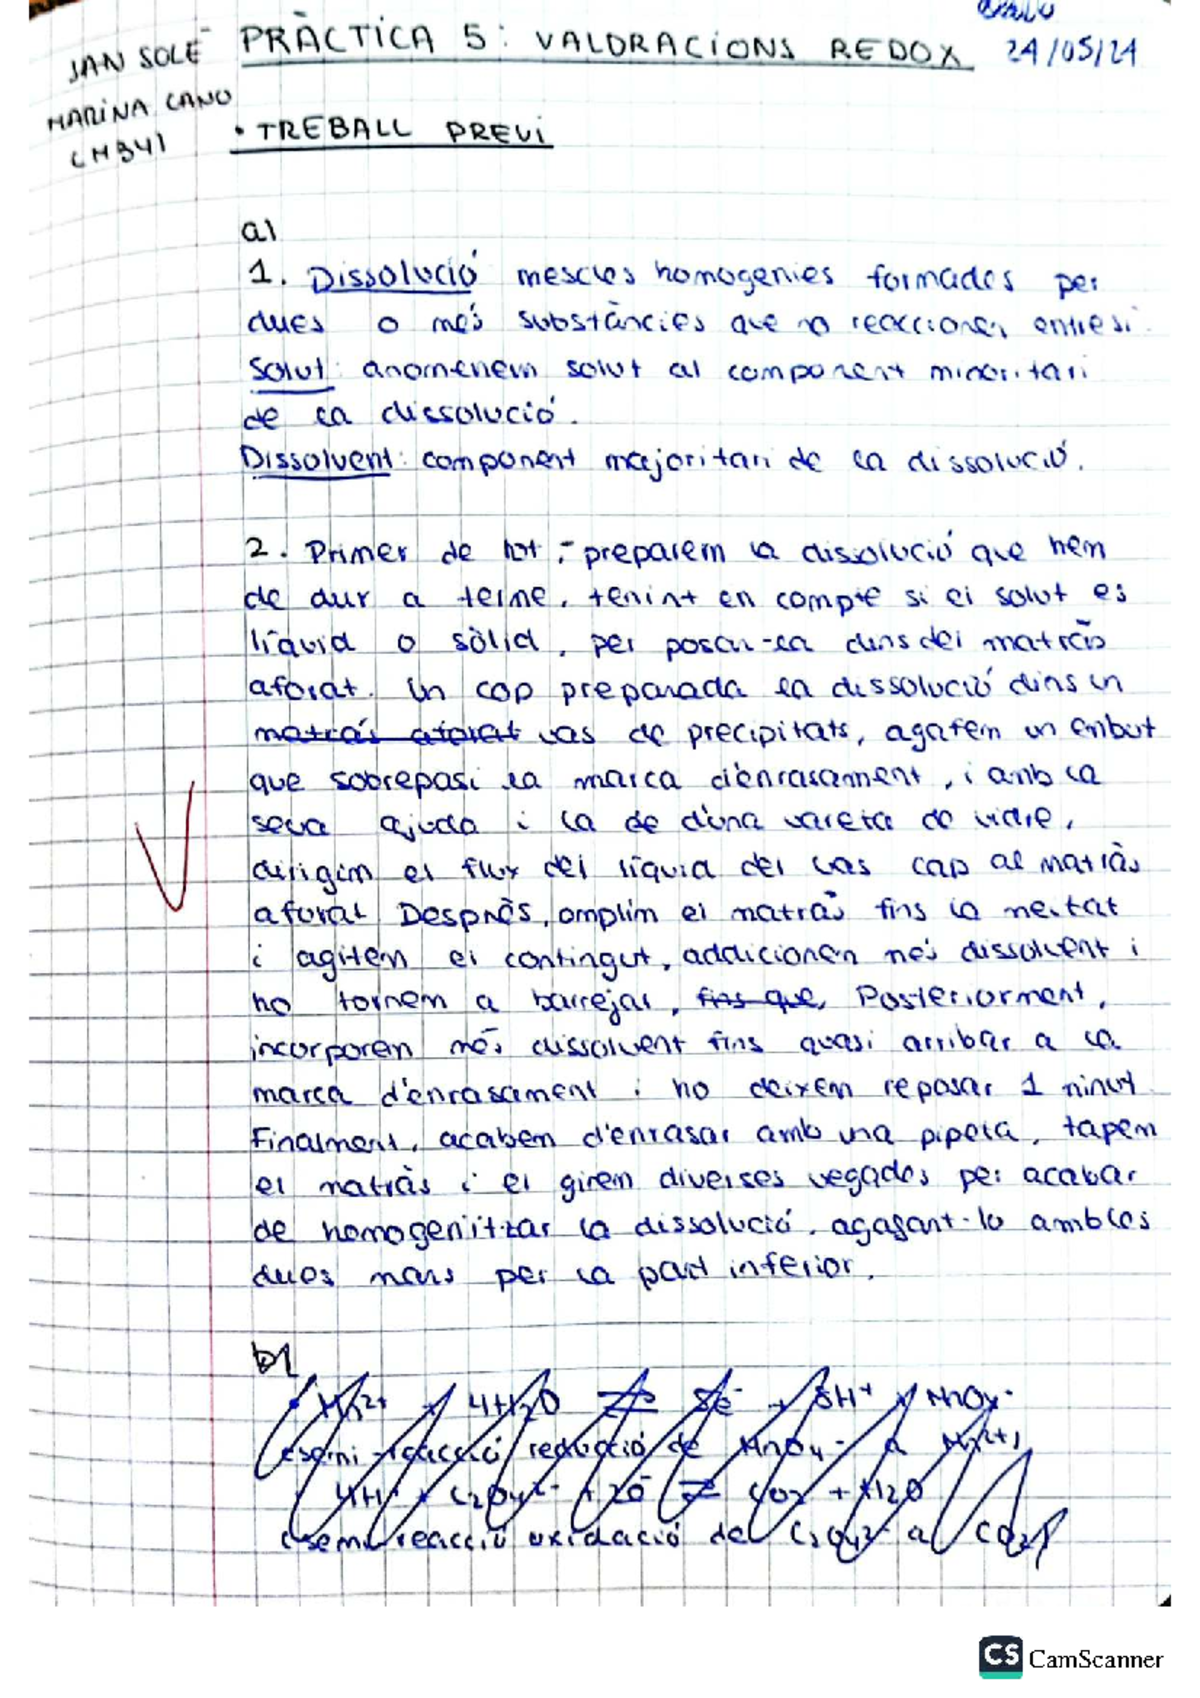 JAN SOLÉ
MARINA CANO
CM341
PRÀCTICA 5: VALORACIONS REDOX
24/05/24
• TREBALL PREVI
a)
1. Dissolució mescles homogenies formades per
dues o més substàncies que no reaccionen entre si.
Solut: anomenem solut al component minoritari
de la dissolució.
Dissolvent: component majoritari de la dissolució.
2. Primer de tot, preparem la dissolució que hem
de dur a terme, tenint en compte si el solut es
líquid o sòlid, per posar-la dins del matràs
aforat. Un cop preparada la dissolució dins un
matràs aforat vas de precipitats, agafem un embut
que sobrepasi la marca d'enrasament, i amb la
seva ajuda i la de d'una vareta de vidre,
dirigim el flux del líquid del vas cap al matràs
aforat Desprès, omplim el matràs fins la meitat
i agitem el contingut, addicionem més dissolvent i
ho tornem a barrejar, fins que, Posteriorment,
incorporem més dissolvent fins quasi arribar a la
marca d'enrasament i ho deixem reposar 1 minut.
Finalment, acabem d'enrasar amb una pipeta, tapem
el matràs i el girem diverses vegades per acabar
de homogenitzar la dissolució, agafant-lo amb les
dues mans per la part inferior.
b)
Mn2+ + 4H2O ⇄ 5e- + 8H+ + MnO4-
(semi-reacció reducció de MnO4- a Mn2+)
4H+ + C2O42- + 2e- ⇄ CO2 + H2O
(semi reacció oxidació del C2O42- al CO2)
CS CamScanner